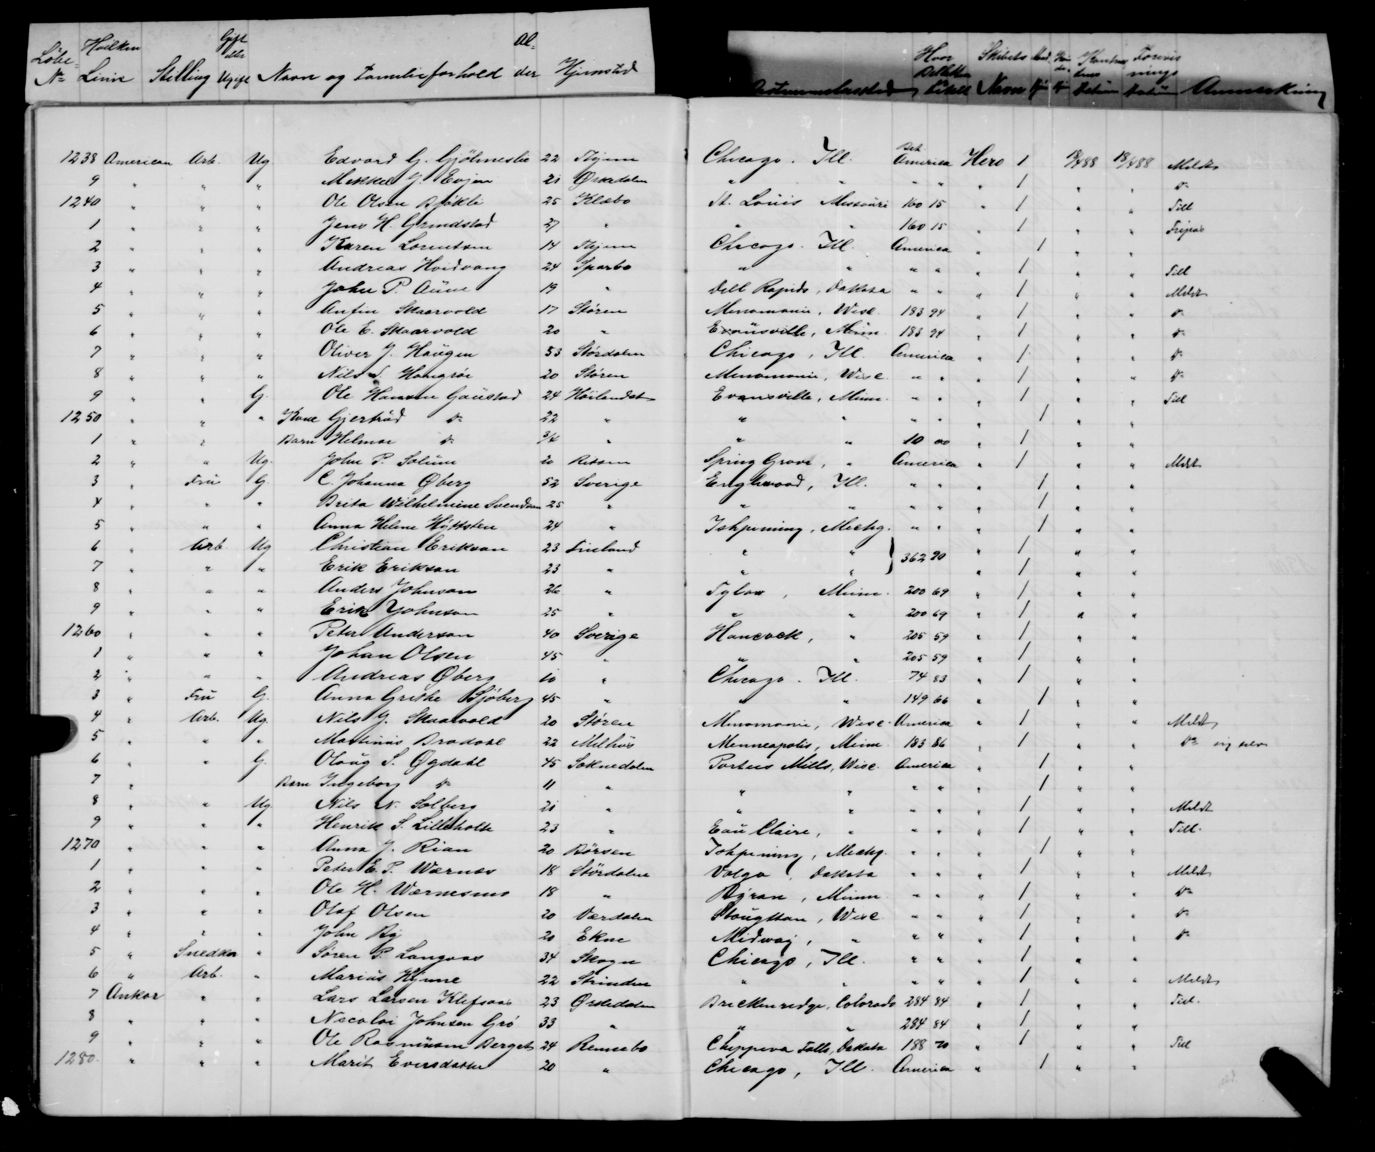 Löbe No Hvilken Linie Stilling Gift eller Ugift Navn og Familieforhold Alder Hjemsted Bestemmelsessted Hvor Billetten betalt Skibets Navn Anmærkning
1238 American Arb. Ug Edvard G. Gjölmeslie 22 Chicago. Ill. Bet. America Hero 1 18/4 88 18/4 88 Meldt
9 " " " Mekkel J. Evjen 21 Ørkedalen " " " " " 1 " " do
1240 " " " Ole Olsen 25 Klæbo St. Louis Missouri 160 15 " 1 " " Till
1 " " " Jens H. Grindstad 27 " " " 160 15 " 1 " "
2 " " " Karen Lorentsen 14 Chicago. Ill. America " 1 " "
3 " " " Andreas Hvidvang 24 Sparbo " " " " " 1 " " Till
4 " " " John P. Aune 19 " Dell Rapids, Dakota " " " 1 " " Meldt
5 " " " Anfin Skaarvold 17 Stören Menomonie, Wisc. 183 94 " 1 " " do
6 " " " Ole E. Skaarvold 20 " Evansville, Minn. 183 94 " 1 " " do
7 " " " Oliver J. Haugen 53 Stördalen Chicago, Ill. America " 1 " " do
8 " " " Nils 20 Stören Menomonie, Wisc. " " " 1 " " do
9 " " G. Ole Hansen Gaustad 24 Höilandet Evansville, Minn. " " " 1 " " Till
1250 " " " Kone Gjertrud do 22 " " " " " " 1 " "
1 " " Barn Helmar do " " " 10 00 " 1 " "
2 " " Ug. John P. Solum 20 Rissen Spring Grove, " America " 1 " " Meldt
3 " Fru G. C. Johanna Øberg 52 Sverige Englewood, Ill. " " " 1 " "
4 " " " Brita Wilhelmine Svendsen 25 " " " " " " 1 " "
5 " " " Anna Helene 24 " Ishpeming, Michg. " " " 1 " "
6 " Arb Ug Christian Erikson 23 Finland " " } 362 90 " 1 " "
7 " " " Erik Erikson 23 " " " " 1 " "
8 " " " Anders Johnson 26 " Minn. 200 69 " 1 " "
9 " " " Erik Johnson 25 " " " 200 69 " 1 " "
1260 " " " Peter Anderson 40 Sverige Hancock, " 205 59 " 1 " "
1 " " " Johan Olsen 45 " " " 205 59 " 1 " "
2 " " " Andreas Øberg 10 " Chicago. Ill. 74 83 " 1 " "
3 " Fru G. Anna Grethe Sjöberg 45 " " " 149 66 " 1 " "
4 " Arb. Ug. Nils J. Skaarvold 20 Stören Menomonie, Wisc. America " 1 " " Meldt
5 " " " Martinus Bradahl 22 Melhus Menneapolis, Minn. 183 86 " 1 " " do
6 " " G. Olaug S. Øgdahl 45 Soknedalen Porters Mills, Wisc. America " 1 " "
7 " Barn Ingeborg do 11 " " " " " " 1 " "
8 " " Ug Nils N. Solberg 21 " " " " " " 1 " " Meldt
9 " " " Henrik S. Lilleholte 23 " Eau Claire, " " " " 1 " " Till.
1270 " " " Anna J. Rian 20 Börsen Ishpeming, Michg. " " " 1 " "
1 " " " Peter E. P. Wærnæs 18 Stördalen Volga, Dakota " " " 1 " " Meldt
2 " " " Ole H. Wærnesmo 18 " Byron, Minn. " " " 1 " " do
3 " " " Olaf Olsen 20 Værdalen Stoughton, Wisc " " " 1 " " do
4 " " " John By 20 Ekne Midway, " " " " 1 " " do
5 " Snedker " Sören P. Langaas 34 Skogn Chicago, Ill. " " " 1 " "
6 " Arb. " Marius 22 Strinden " " " " " 1 " " Meldt
7 Ankor " " Lars Larsen Klefsaas 23 Ørkedalen Breckenredge, Colorado 284 84 " 1 " " Till.
8 " " " Nicolai Johnsen Grö 33 " " " 284 84 " 1 " "
9 " " " Ole Rasmusen Berget 24 Rennebo Chippeva Falls, Dakota 188 70 " 1 " " Till
1280 " " " Marit Eversdatter 20 " Chicago, Ill. America " 1 " "